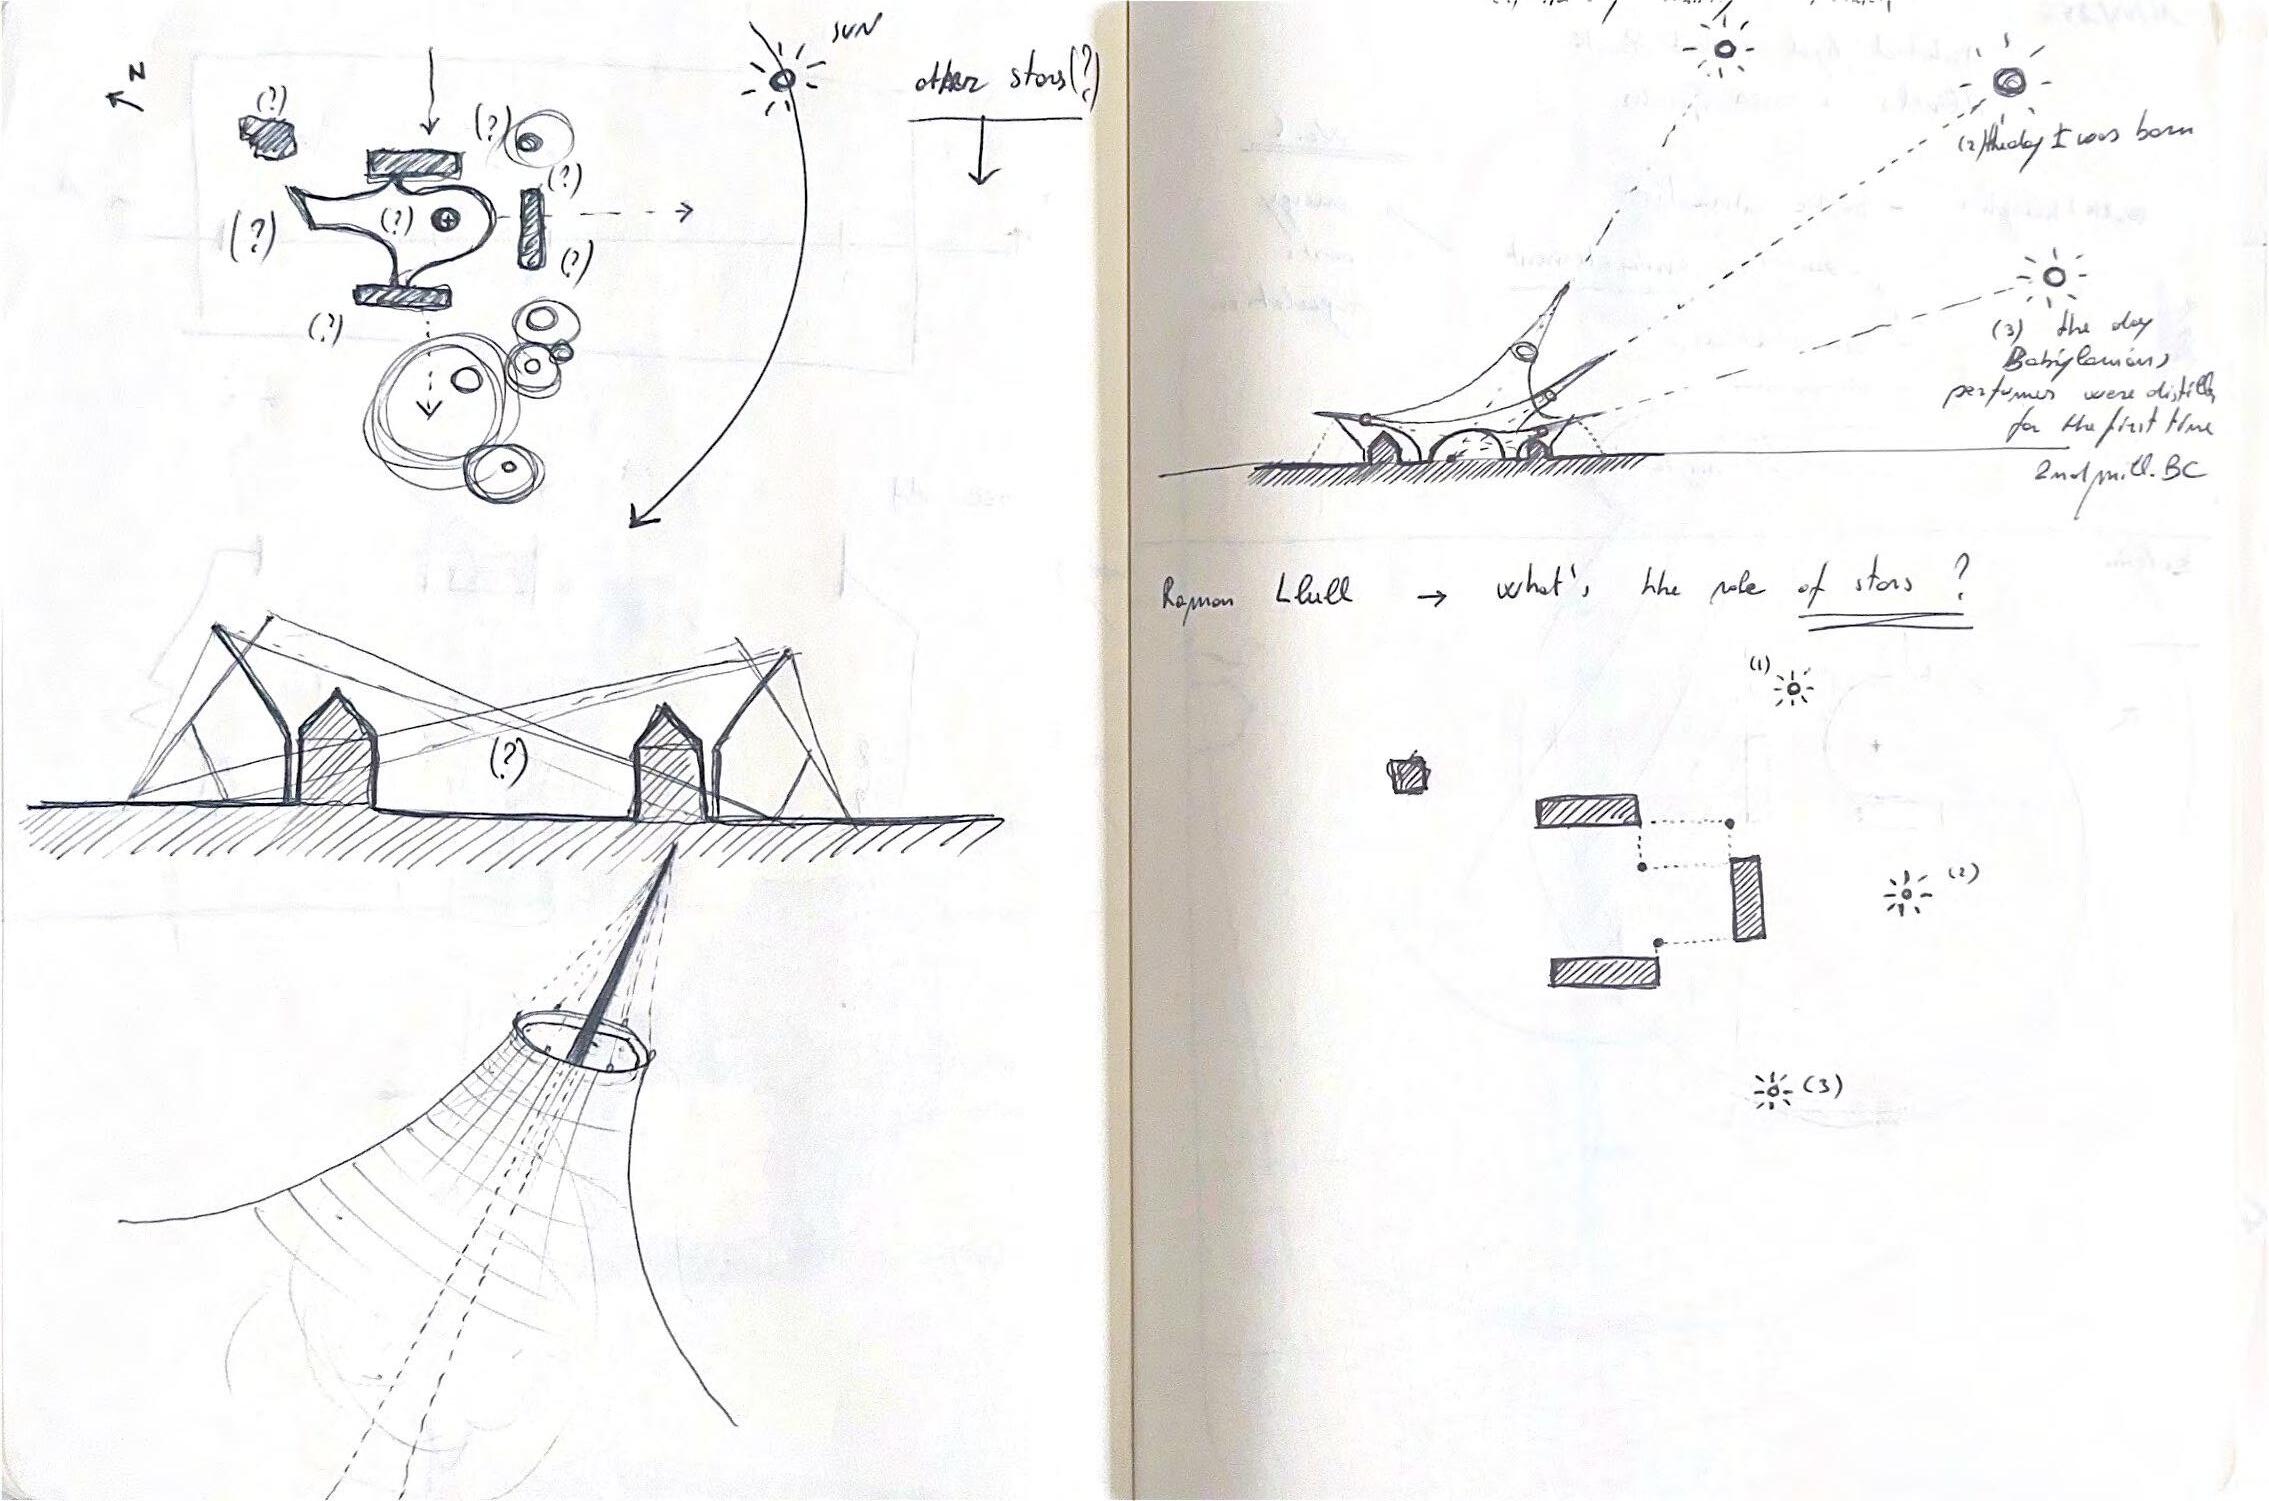 N
SUN
other stars(?)
(?)
(?)
(?)
(?)
(?)
(?)
(?)
(?)
(2) the day I was born
(3) the day
Babylonians
perfumes were distills
for the first time
2nd mill. BC
Ramon Llull → what's the role of stars ?
(1)
(2)
(3)